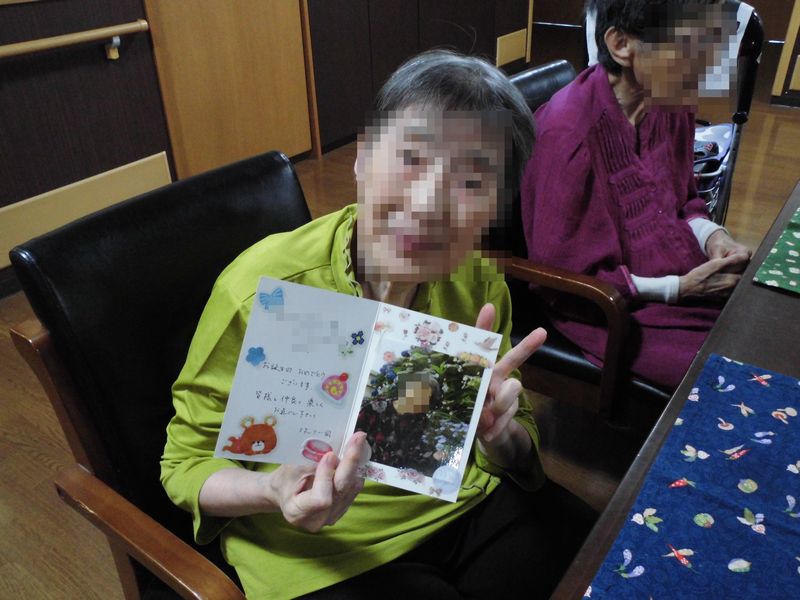 お誕生日 おめでとう
ございます
皆様と仲良く 楽しく
お過ごし下さい
スタッフ一同